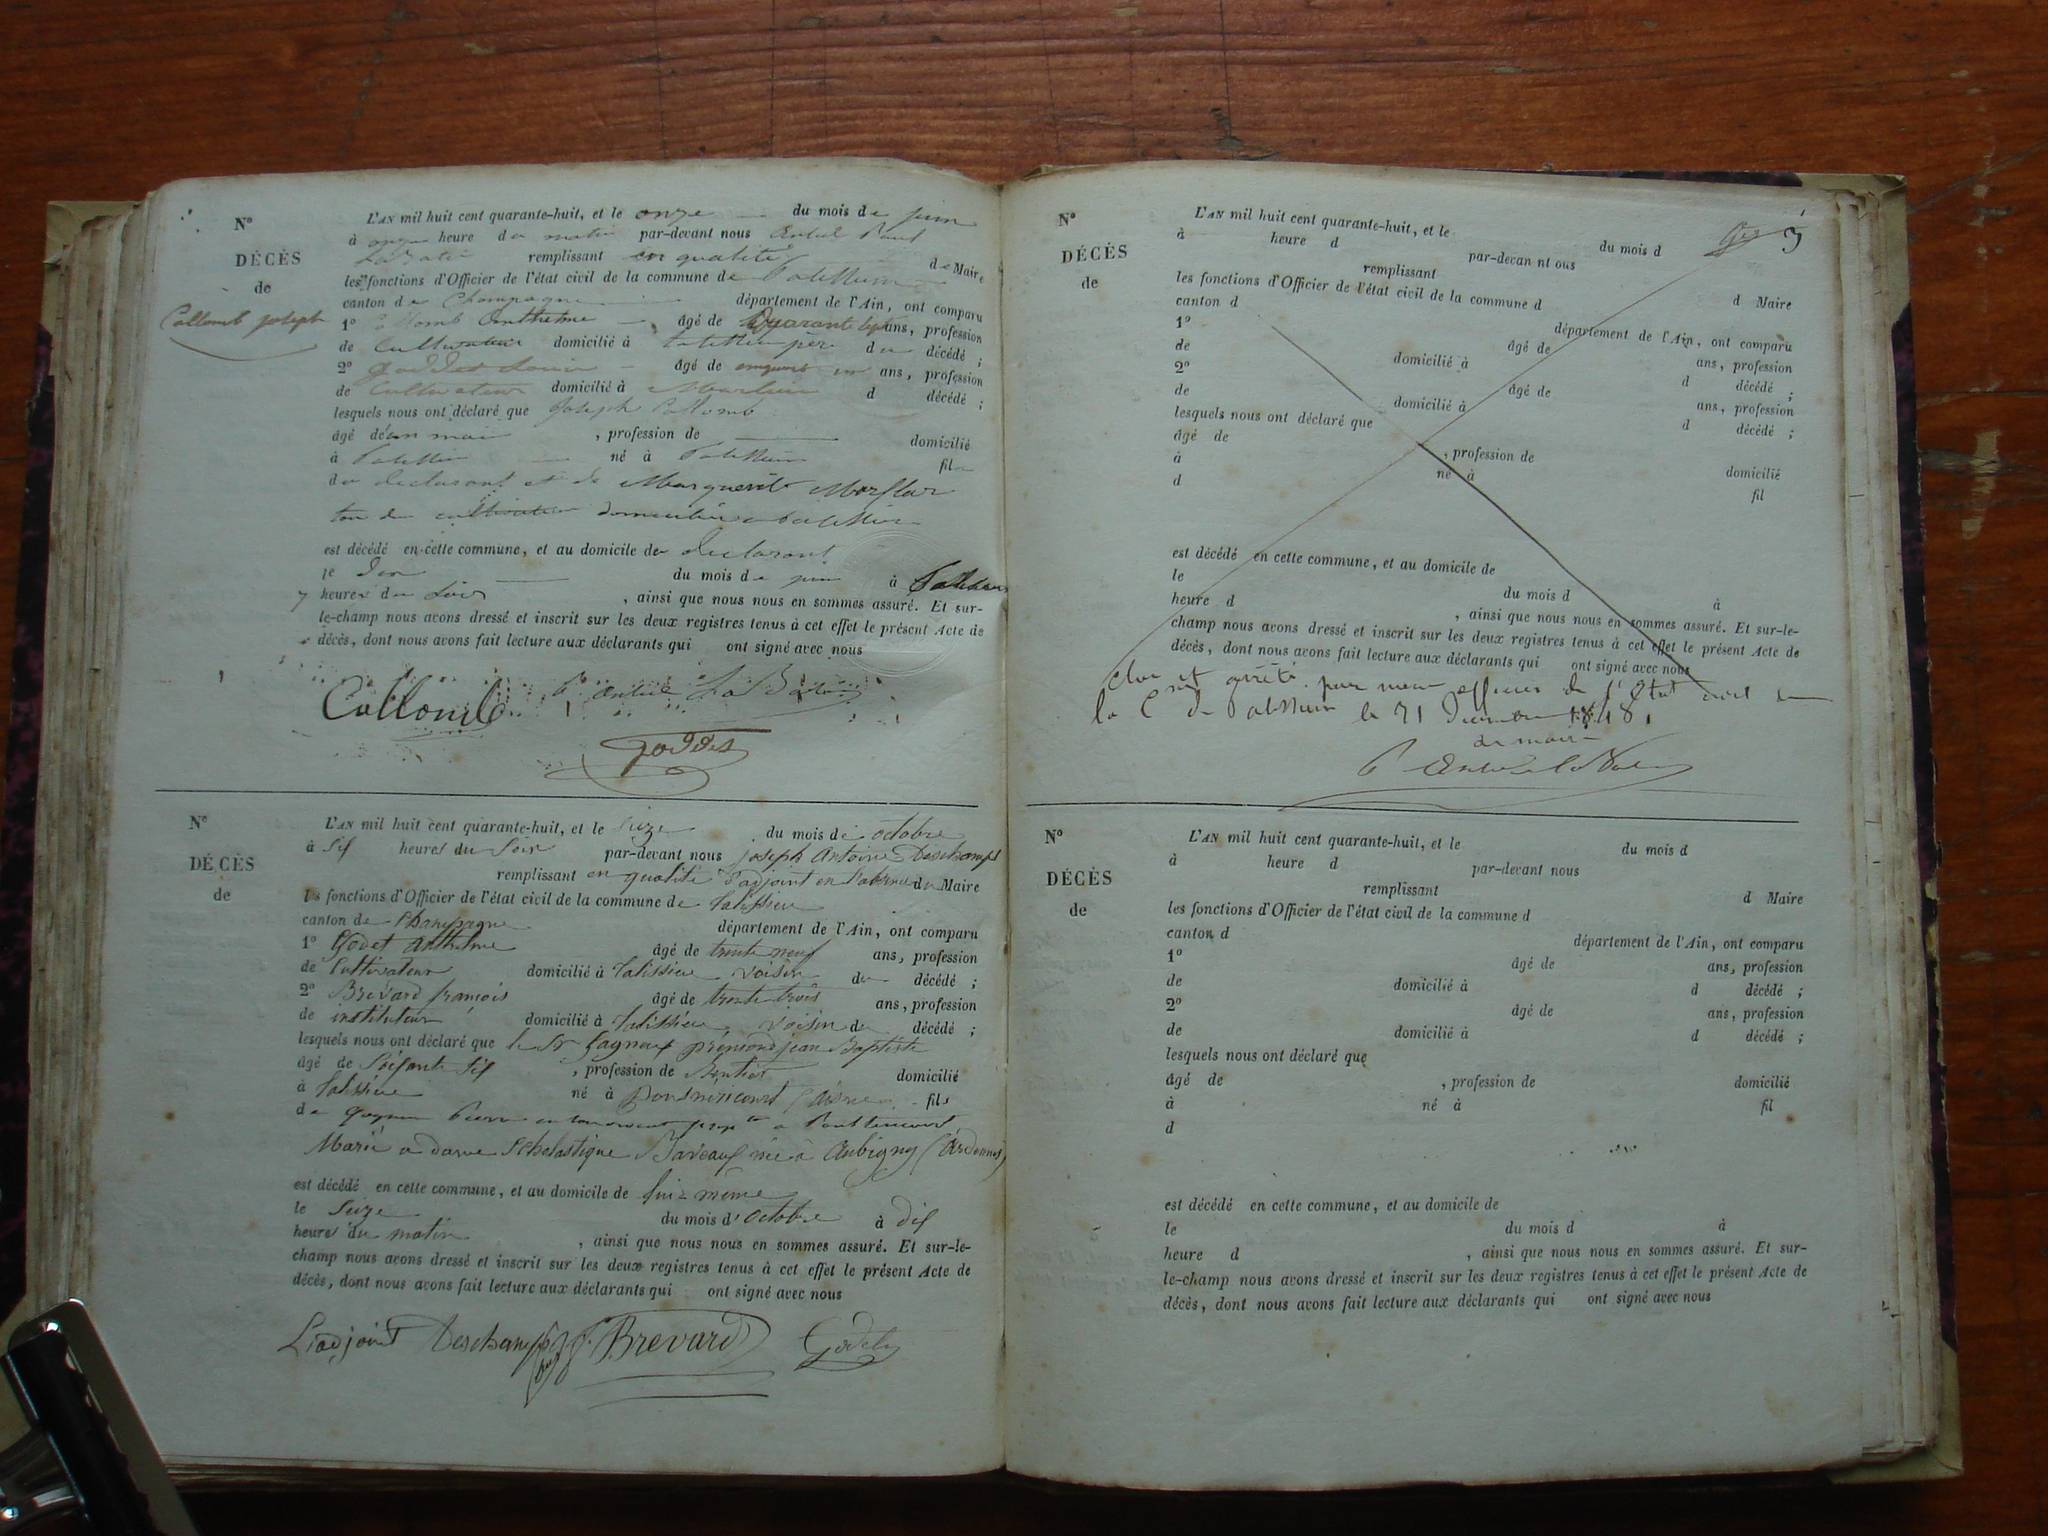 N° L'AN mil huit cent quarante-huit, et le onze du mois de juin
à onze heure du matin par-devant nous Antel Paul
DÉCÈS remplissant en qualité de Maire
de les fonctions d'Officier de l'état civil de la commune de Talissieu
canton de Champagne département de l'Ain, ont comparu
Collomb joseph
1° Collomb Anthelme âgé de Quarant sept ans, profession
de Cultivateur domicilié à talissieu père du décédé ;
2° goddet Louis âgé de ans, profession
de Cultivateur domicilié à d décédé ;
lesquels nous ont déclaré que Joseph Collomb
âgé de un mois , profession de domicilié
à Talissieu né à Talissieu fils
du declarant et de Marguerite
domiciliée a talissieu
est décédé en cette commune, et au domicile du declarant
le dix du mois de juin à
7 heures du soir , ainsi que nous nous en sommes assuré. Et sur-
le-champ nous avons dressé et inscrit sur les deux registres tenus à cet effet le présent Acte de
décès, dont nous avons fait lecture aux déclarants qui ont signé avec nous
Collomb
goddet
N° L'AN mil huit cent quarante-huit, et le seize du mois de octobre
à six heures du soir par-devant nous joseph Antoine Deschamps
DÉCÈS remplissant en qualité d'adjoint en l'absence du Maire
de les fonctions d'Officier de l'état civil de la commune de talissieu
canton de Champagne département de l'Ain, ont comparu
1° Godet anthelme âgé de trente neuf ans, profession
de Cultivateur domicilié à talissieu voisin du décédé ;
2° Brevard françois âgé de trente trois ans, profession
de instituteur domicilié à talissieu, voisin du décédé ;
lesquels nous ont déclaré que le Sr jean Baptiste
âgé de Soixante six , profession de Rentier domicilié
à talissieu né à fils
de Pierre
Marié a dame Scholastique née à Aubigny (Ardennes)
est décédé en cette commune, et au domicile de lui-même
le seize du mois d'octobre à dix
heures du matin , ainsi que nous nous en sommes assuré. Et sur-le-
champ nous avons dressé et inscrit sur les deux registres tenus à cet effet le présent Acte de
décès, dont nous avons fait lecture aux déclarants qui ont signé avec nous
L'adjoint Deschamps Brevard Godet
N° L'AN mil huit cent quarante-huit, et le du mois d 3
à heure d par-devan nt ous
DÉCÈS remplissant d Maire
de les fonctions d'Officier de l'état civil de la commune d
canton d département de l'Ain, ont comparu
1° âgé de ans, profession
de domicilié à d décédé ;
2° âgé de ans, profession
de domicilié à d décédé ;
lesquels nous ont déclaré que
âgé de , profession de domicilié
à né à fil
d
est décédé en cette commune, et au domicile de
le du mois d à
heure d , ainsi que nous nous en sommes assuré. Et sur-le-
champ nous avons dressé et inscrit sur les deux registres tenus à cet effet le présent Acte de
décès, dont nous avons fait lecture aux déclarants qui ont signé avec nous
clos et arrêté par nous officier de l'état civil de
la C de Talissieu le 31 1848
N° L'AN mil huit cent quarante-huit, et le du mois d
à heure d par-devant nous
DÉCÈS remplissant d Maire
de les fonctions d'Officier de l'état civil de la commune d
canton d département de l'Ain, ont comparu
1° âgé de ans, profession
de domicilié à d décédé ;
2° âgé de ans, profession
de domicilié à d décédé ;
lesquels nous ont déclaré que
âgé de , profession de domicilié
à né à fil
d
est décédé en cette commune, et au domicile de
le du mois d à
heure d , ainsi que nous nous en sommes assuré. Et sur-
le-champ nous avons dressé et inscrit sur les deux registres tenus à cet effet le présent Acte de
décès, dont nous avons fait lecture aux déclarants qui ont signé avec nous